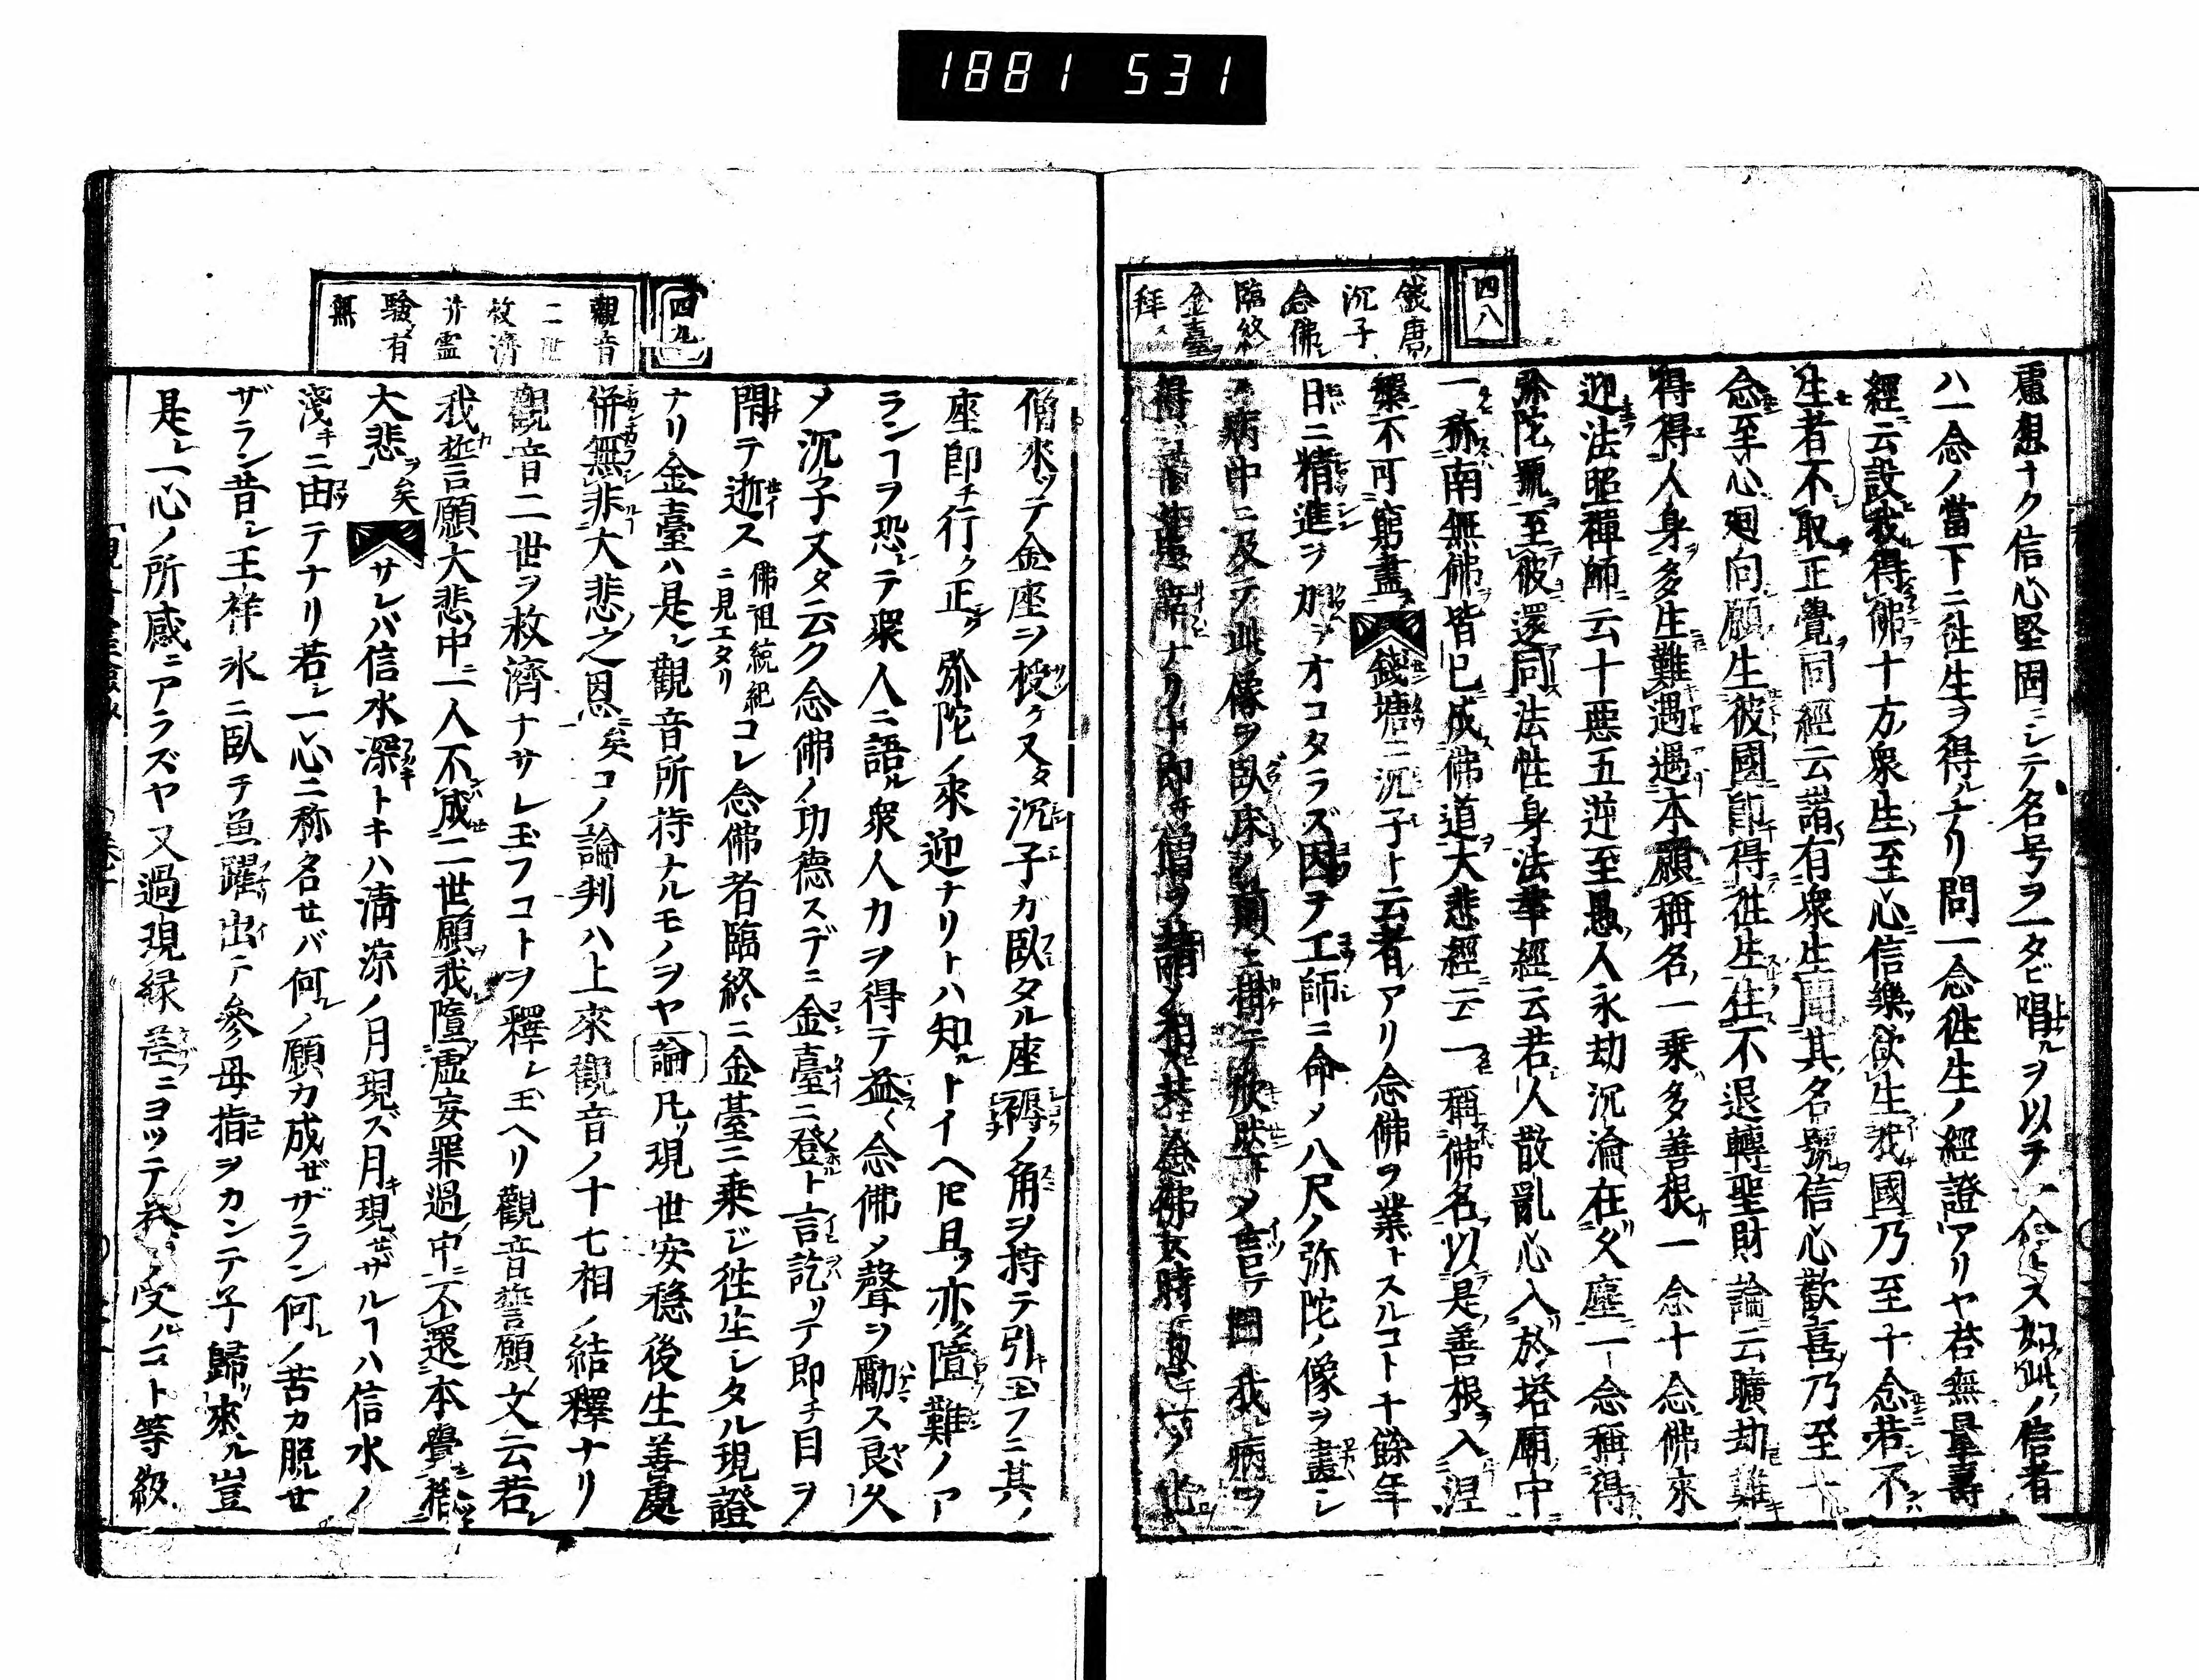 1881 531
四八
錢唐
沉子
念佛
臨終
金臺ヲ
拜ス
慮想ナク信心堅固ニシテ名号ヲ一タビ唱ルヲ以テ一念トス如此ノ信者
ハ一念ノ當下ニ往生ヲ得ルナリ問一念往生ノ經證アリヤ荅無量壽
經云設我得佛十方衆生至心信樂欲生我國乃至十念若不
生者不取正覺同經云諸有衆生聞其名號信心歡喜乃至一
念至心廻向願生彼國即得往生住不退轉聖財論云曠劫難
得得人身多生難遇遇本願稱名一乘多善根一念十念佛來
迎法照禪師云十惡五逆至愚人永劫沉淪在久塵一念稱得
弥陀號至彼還同法性身法華經云若人散亂心入於塔廟中
一称南無佛皆已成佛道大悲經云一稱佛名以是善根入涅
槃不可窮盡錢塘ニ沉子ト云者アリ念佛ヲ業トスルコト十餘年
日ニ精進ヲ加ヲオコタラズ因テ工師ニ命メ八尺ノ弥陀ノ像ヲ畫シ
病中ニ及テ此像ヲ臥床ノ前ニ掛テ欣然トメ言テ曰我病ヲ
得
僧來ツテ金座ヲ授ク又タ沉子ガ臥タル座褥ノ角ヲ持テ引玉フニ其ノ
座即チ行ク正ク弥陀ノ來迎ナリトハ知ルトイヘ𪜈且ク亦タ障難ノア
ランヿヲ恐レテ衆人ニ語ル衆人力ヲ得テ益〻念佛メ聲ヲ勵ス良久
メ沉子又タ云ク念佛ノ功德スデニ金臺ニ登ト言訖リテ即チ目ヲ
閉テ逝ス佛祖統紀ニ見エタリコレ念佛者臨終ニ金䑓ニ乘ジ徃生シタル現證
ナリ金臺ハ是レ觀音所持ナルモノヲヤ論凡ソ現世安穏後生善處
併無非大悲之恩矣コノ論判ハ上來觀音ノ十七相ノ結釋ナリ
觀音二世ヲ救濟ナサレ玉フコトヲ釋シ玉ヘリ觀音誓願文云若シ
我誓願大悲中ニ一人不成二世願我墮虛妄罪過中不還本覺捨
大悲ヲ矣サレバ信水深トキハ清凉ノ月現ズ月現ゼザルヿハ信水ノ
淺キニ由テナリ若シ一心ニ称名セバ何レノ願カ成ゼザラン何レノ苦カ脱セ
ザラン昔シ王祥氷ニ臥テ魚躍出テ參母指ヲカンテ子歸來ル豈
是レ一心ノ所感ニアラズヤ又過現縁差ニヨツテ益ヲ受ルコト等級
四九
觀音
二世
救濟
并霊
驗有
無